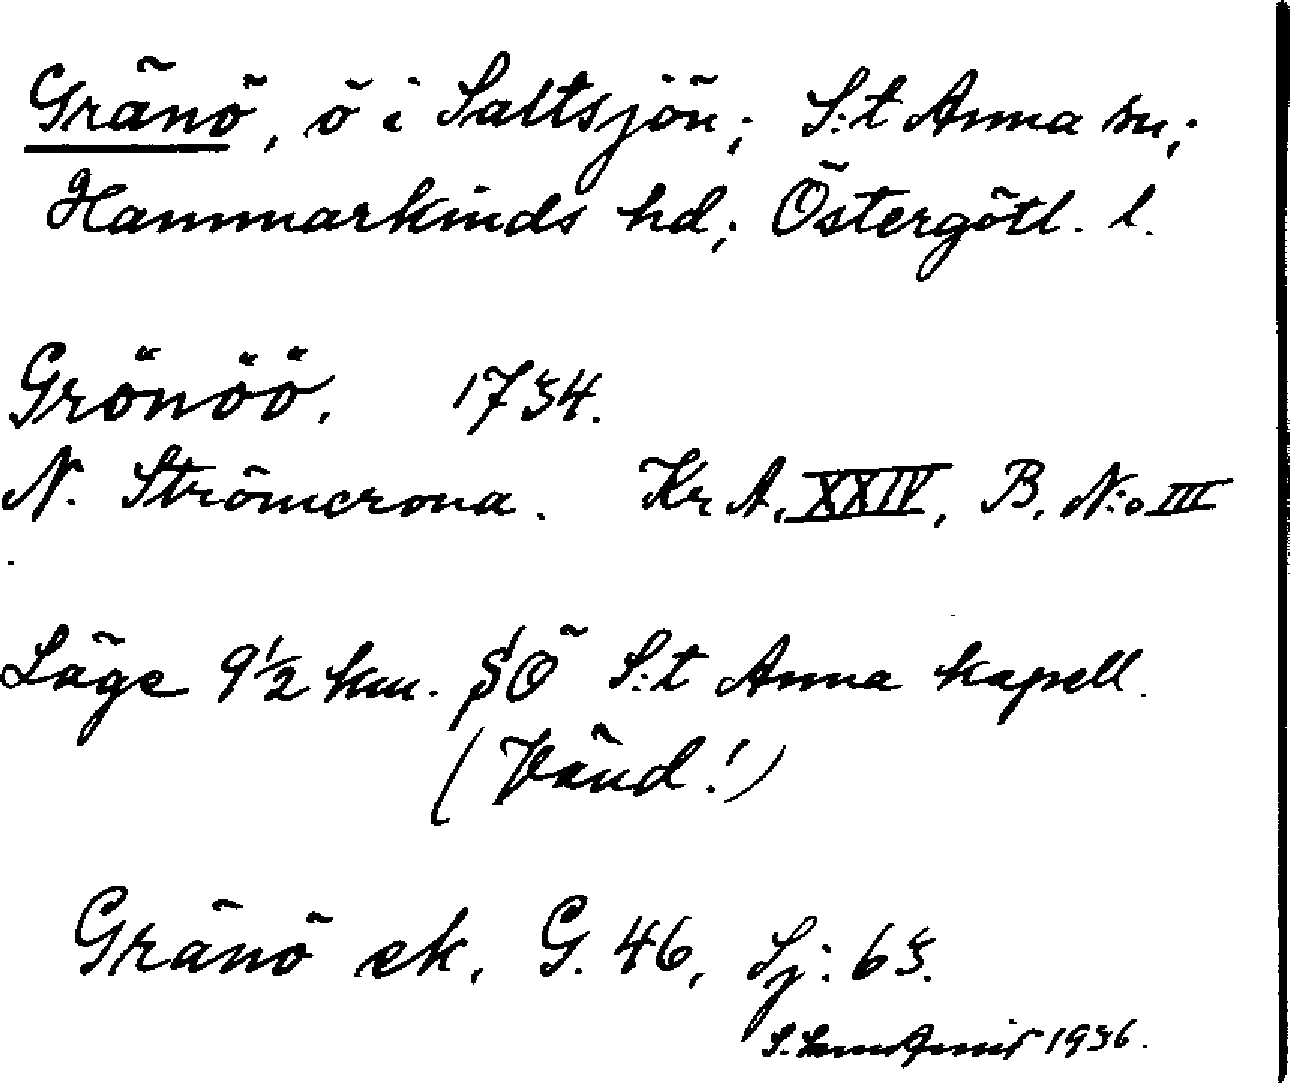 Gränö, ö i Saltsjön; S:t Anna sn;
Hammarkinds hd; Östergötl. l.
Grönöö. 1734.
N. Strömcrona. Kr A, XXIV, B, N:o III
Läge 9 1/2 km. SÖ S:t Anna kapell.
(Vänd!)
Gränö ek. G. 46, Sj: 63.
S. 1936.